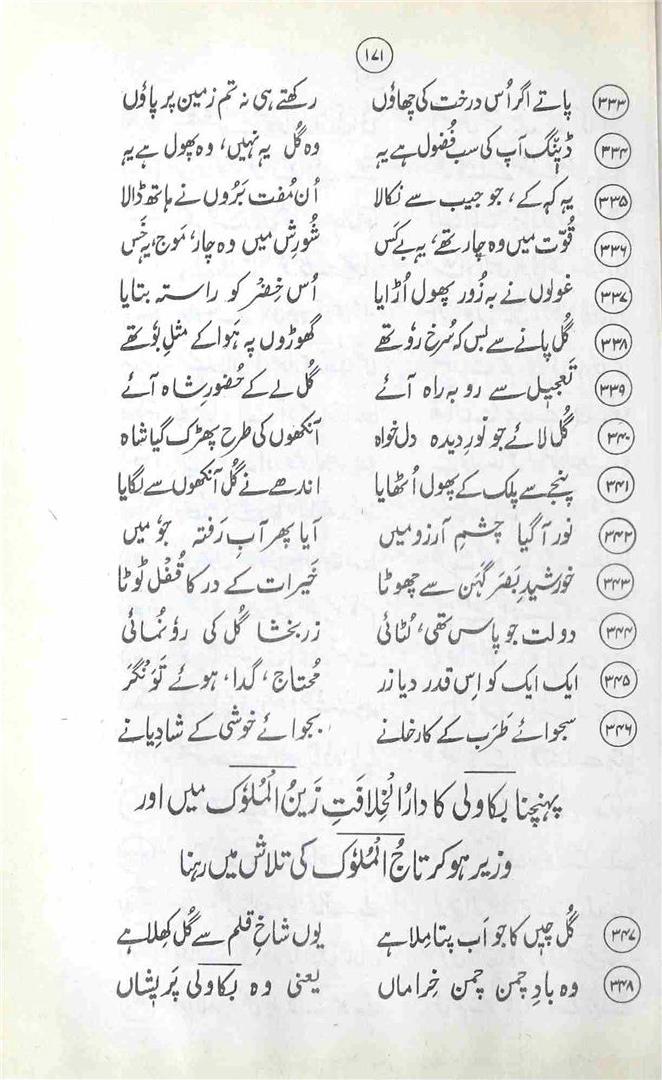 ۱۷۱
۳۳۳ پاتے اگر اُس درخت کی چھاؤں رکھتے ہی نہ تم زمین پر پاؤں
۳۳۴ ڈینگ آپ کی سب فُضول ہے یہ وہ گُل یہ نہیں، وہ پھول ہے یہ
۳۳۵ یہ کہہ کے، جو جیب سے نکالا اُن مُفت بَروں نے ہاتھ ڈالا
۳۳۶ قُوّت میں وہ چار تھے، یہ بے کَس شُورِش میں وہ چار، مَوج، یہ خَس
۳۳۷ غولوں نے بہ زُور پھول اُڑایا اُس خِضر کو راستہ بتایا
۳۳۸ گُل پانے سے بس کہ سُرخ رو تھے گھوڑوں پہ ہَوا کے مثلِ بو تھے
۳۳۹ تَعجیل سے رو بہ راہ آئے گُل لے کے حُضورِ شاہ آئے
۳۴۰ گُل لائے جو نورِ دیدہ دل خواہ آنکھوں کی طرح پھڑک گیا شاہ
۳۴۱ پنجے سے پلک کے پھول اُٹھایا اندھے نے گُل آنکھوں سے لگایا
۳۴۲ نور آ گیا چشمِ آرزو میں آیا پھر آبِ رَفتہ جو میں
۳۴۳ خورشیدِ بَصَر گہن سے چھوٹا خَیرات کے در کا قُفل ٹوٹا
۳۴۴ دولت جو پاس تھی، لُٹائی زر بخشا گُل کی رونُمائی
۳۴۵ ایک ایک کو اِس قدر دیا زر مُحتاج، گدا، ہوئے تَوَنگَر
۳۴۶ سجوائے طَرَب کے کارخانے بجوائے خوشی کے شادیانے
پہنچنا بکاولی کا دارُالخِلافتِ زَینُ الْمُلوٗک میں اور
وزیر ہو کر تاجُ الْمُلوٗک کی تلاش میں رہنا
۳۴۷ گُل چیں کا جو اَب پتا مِلا ہے یوں شاخِ قلم سے گُل کھِلا ہے
۳۴۸ وہ بادِ چمن چمن خِراماں یعنی وہ بکاولی پَریشاں